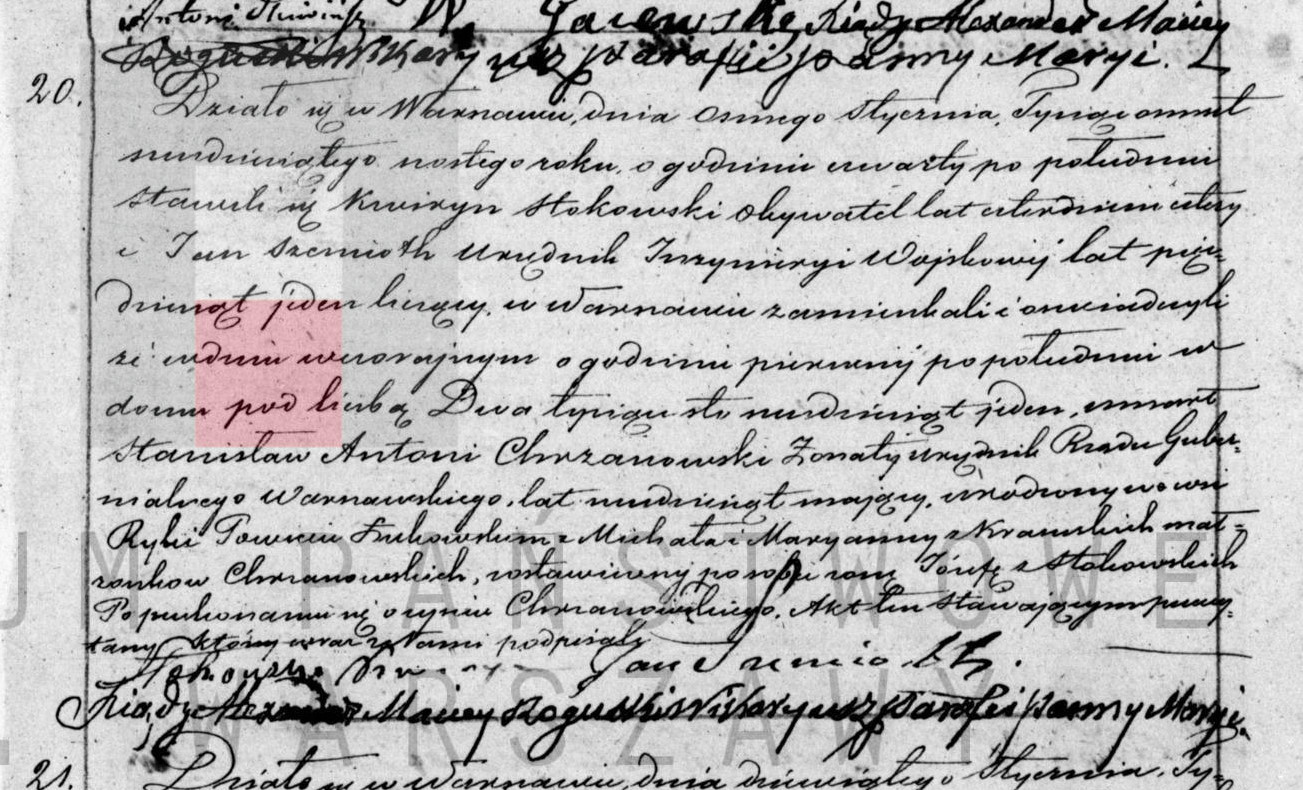 i Antoni
W. Gacewski, Xiądz Alexander Maciey
Roguski Wikaryusz parafii Panny Maryi.
20.
Działo się w Warszawie, dnia ósmego Stycznia, Tysiąc ośmset
sześćdziesiątego szóstego roku, o godzinie czwarty po południu
Stawili się Kwiryn Stokowski Obywatel lat czterdzieści cztery
i Jan Szemioth Urzędnik Inżynieryi Wojskowéj lat pięć=
dziesiąt jeden liczący, w Warszawie zamieszkali i oświadczyli
że w dniu wczorajszym o godzinie pierwszéj po południu w
domu pod liczbą Dwa tysiące sto sześćdziesiąt jeden, umarł
Stanisław Antoni Chrzanowski Żonaty urzędnik Rządu Guber=
nialnego Warszawskiego, lat sześćdziesiąt mający, urodzony we wsi
Rybie Powiecie Łukowskim z Michała i Maryanny z Krasuskich mał=
żonków Chrzanowskich, zostawiwszy po sobie żonę Józefę z Stokowskich
Po przekonaniu się o zejściu Chrzanowskiego, Akt ten stawającym przeczy=
tany, którzy wraz z Nami podpisali
Stokowski Jan Szemioth.
Xiądz Alexander Maciey Roguski Wikaryusz Parafii Panny Maryi.
21.
Działo się w Warszawie, dnia dziewiątego Stycznia, Ty=
UM PAŃSTWOWE
WARSZAWY